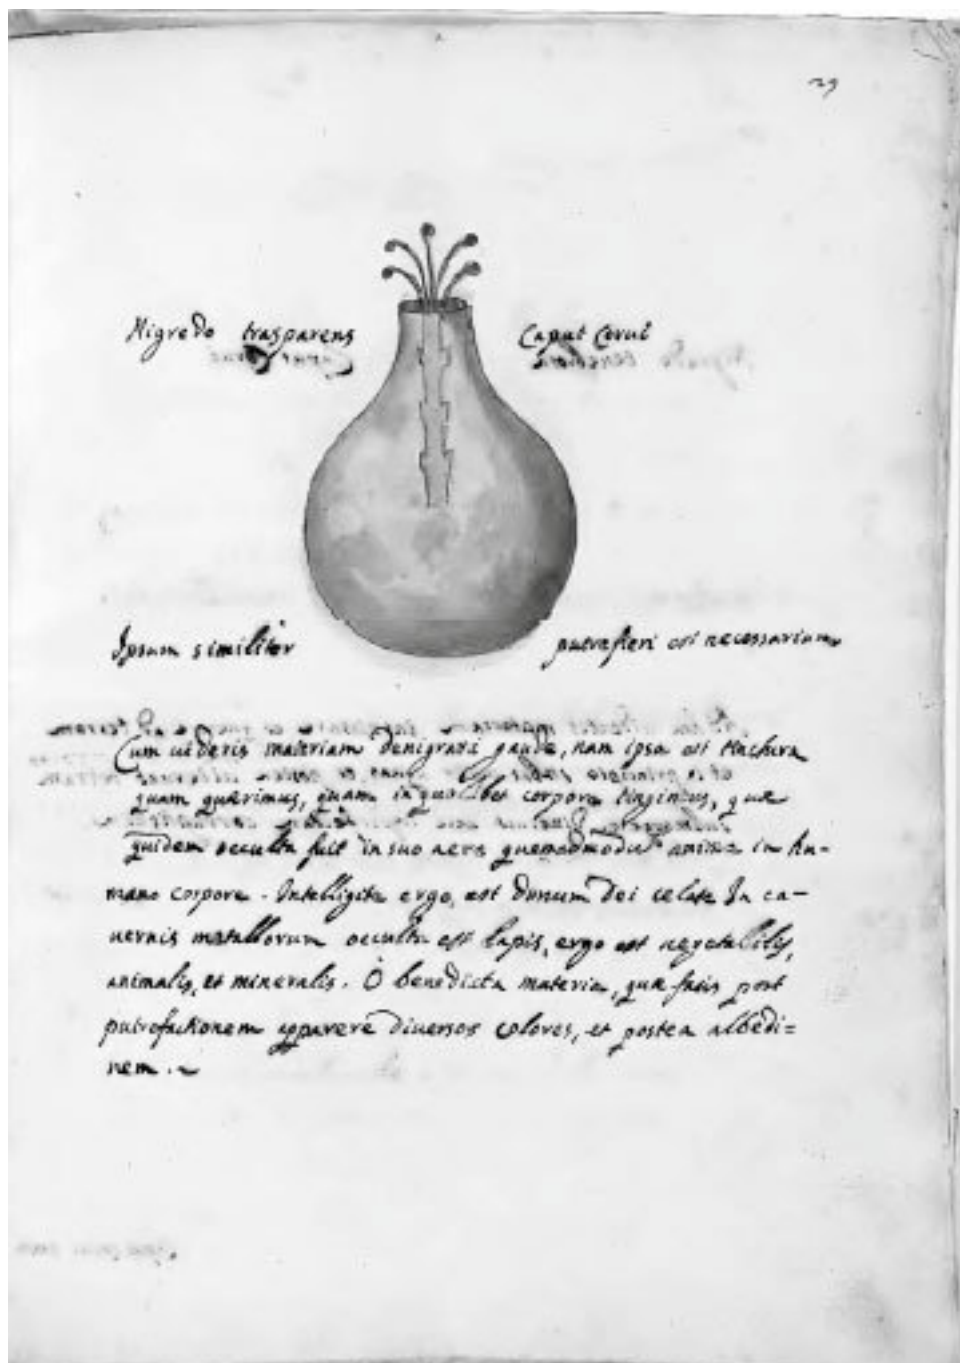 29
Nigredo trasparens
Caput Corui
Ipsum similiter
putrefieri est necessarium
Cum uideris materiam denigrari gaude, nam ipsa est tinctura
quam quærimus, quam in quolibet corpore tingimus, quæ
quidem occulta fuit in suo aere quemadmodum anima in hu-
mano corpore. Intelligite ergo, est donum dei celate In ca-
uernis metallorum occulta est lapis, ergo est uegetabilis,
animalis, et mineralis. O benedicta materia, quæ facis post
putrefactionem apparere diuersos colores, et postea albedi=
nem.